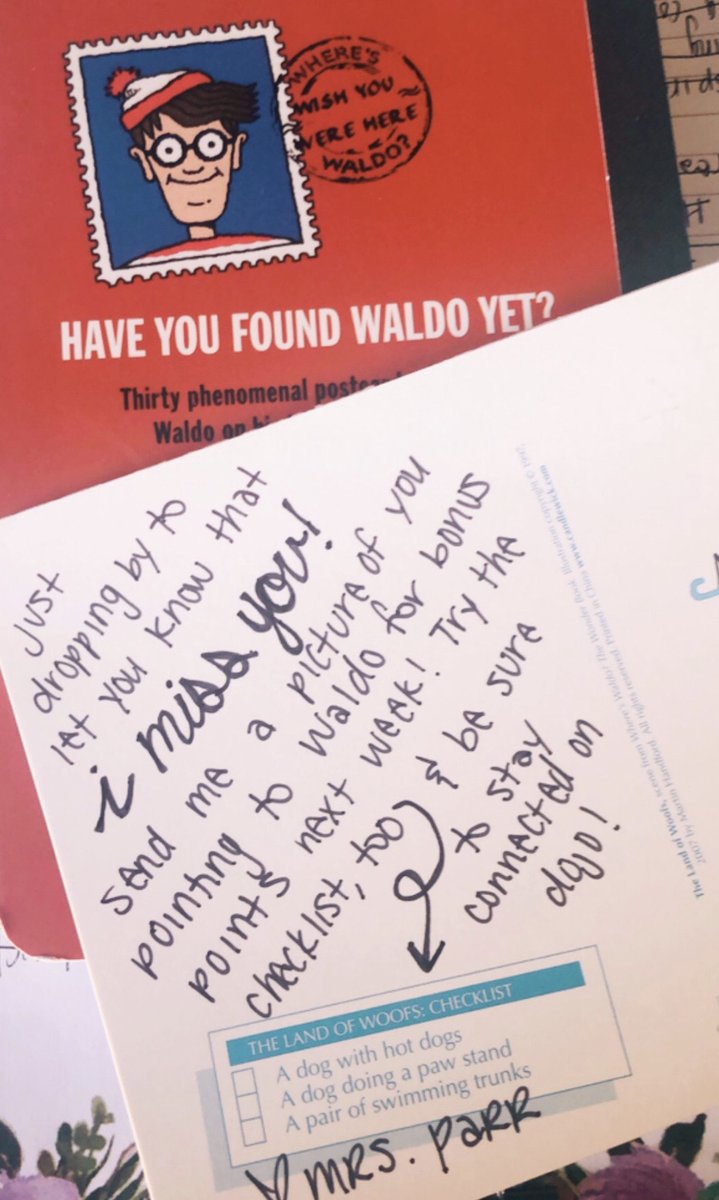 WHERE'S
WISH YOU
WERE HERE
WALDO?
HAVE YOU FOUND WALDO YET?
Thirty phenomenal
Waldo on
Just
dropping by to
let you know that
i miss you!
Send me a picture of you
pointing to Waldo for bonus
points next week! Try the
checklist, too & be sure
to stay
connected on
dojo!
The Land of Woofs, scene from Where's Waldo? The Wonder Book. Illustration copyright © 1997,
2007 by Martin Handford. All rights reserved. Printed in China www.candlewick.com
THE LAND OF WOOFS: CHECKLIST
A dog with hot dogs
A dog doing a paw stand
A pair of swimming trunks
♡ MRS. PARR